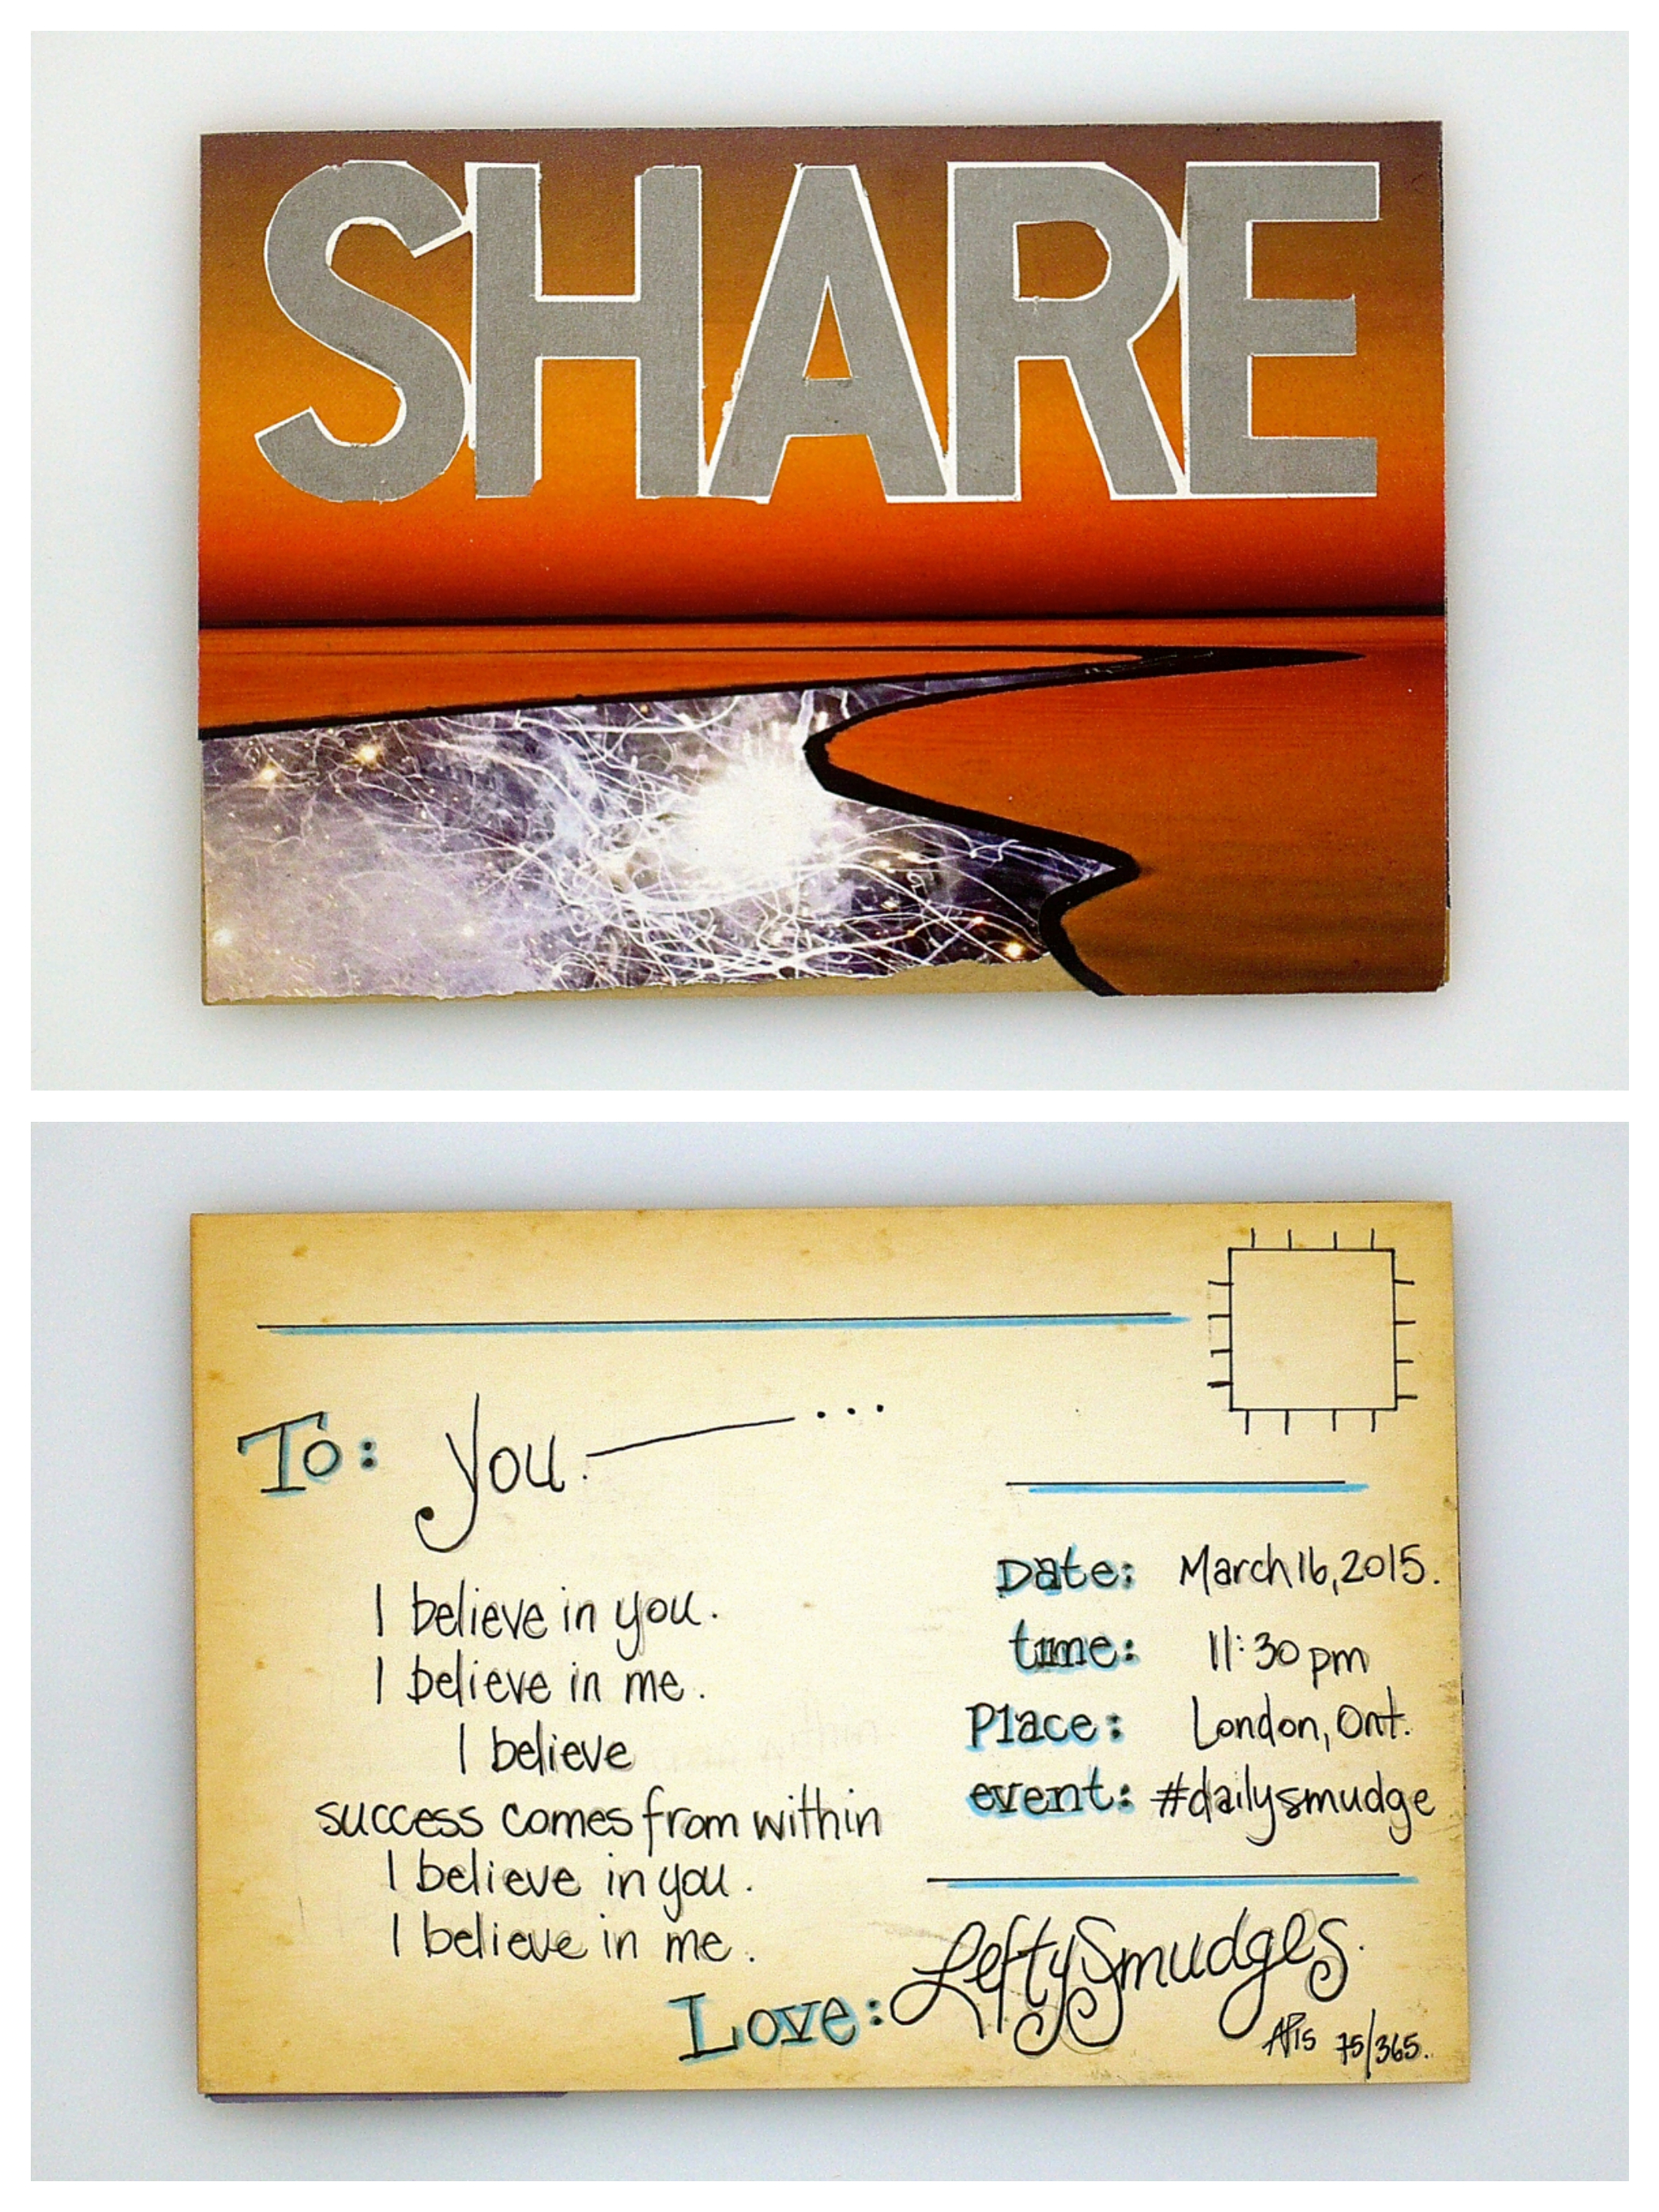 SHARE
To: you. ...
I believe in you.
I believe in me.
I believe
success comes from within
I believe in you.
I believe in me.
Date: March 16, 2015.
time: 11:30 pm
Place: London, Ont.
event: #dailysmudge
Love: LeftySmudges.
AP15 75/365.